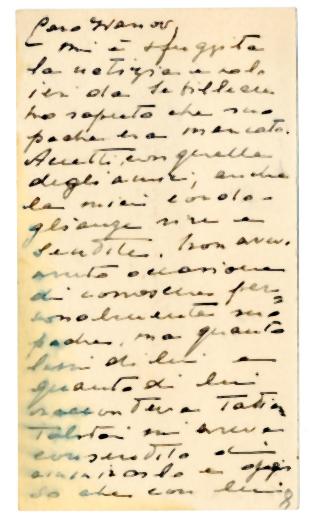 Caro Ivanov,
mi è sfuggita
la notizia e
ieri da
ho saputo che suo
padre era mancato.
Accetti, con quelle
degli amici, anche
la mia condo-
glianze vive e
sentite. Non avevo
avuto occasione
di conoscere per-
sonalmente suo
padre, ma quanto
lessi di lui e
quanto di lui
raccontava Tatiana
Tolstoi mi aveva
consentito di
ammirarlo e oggi
so che con lui